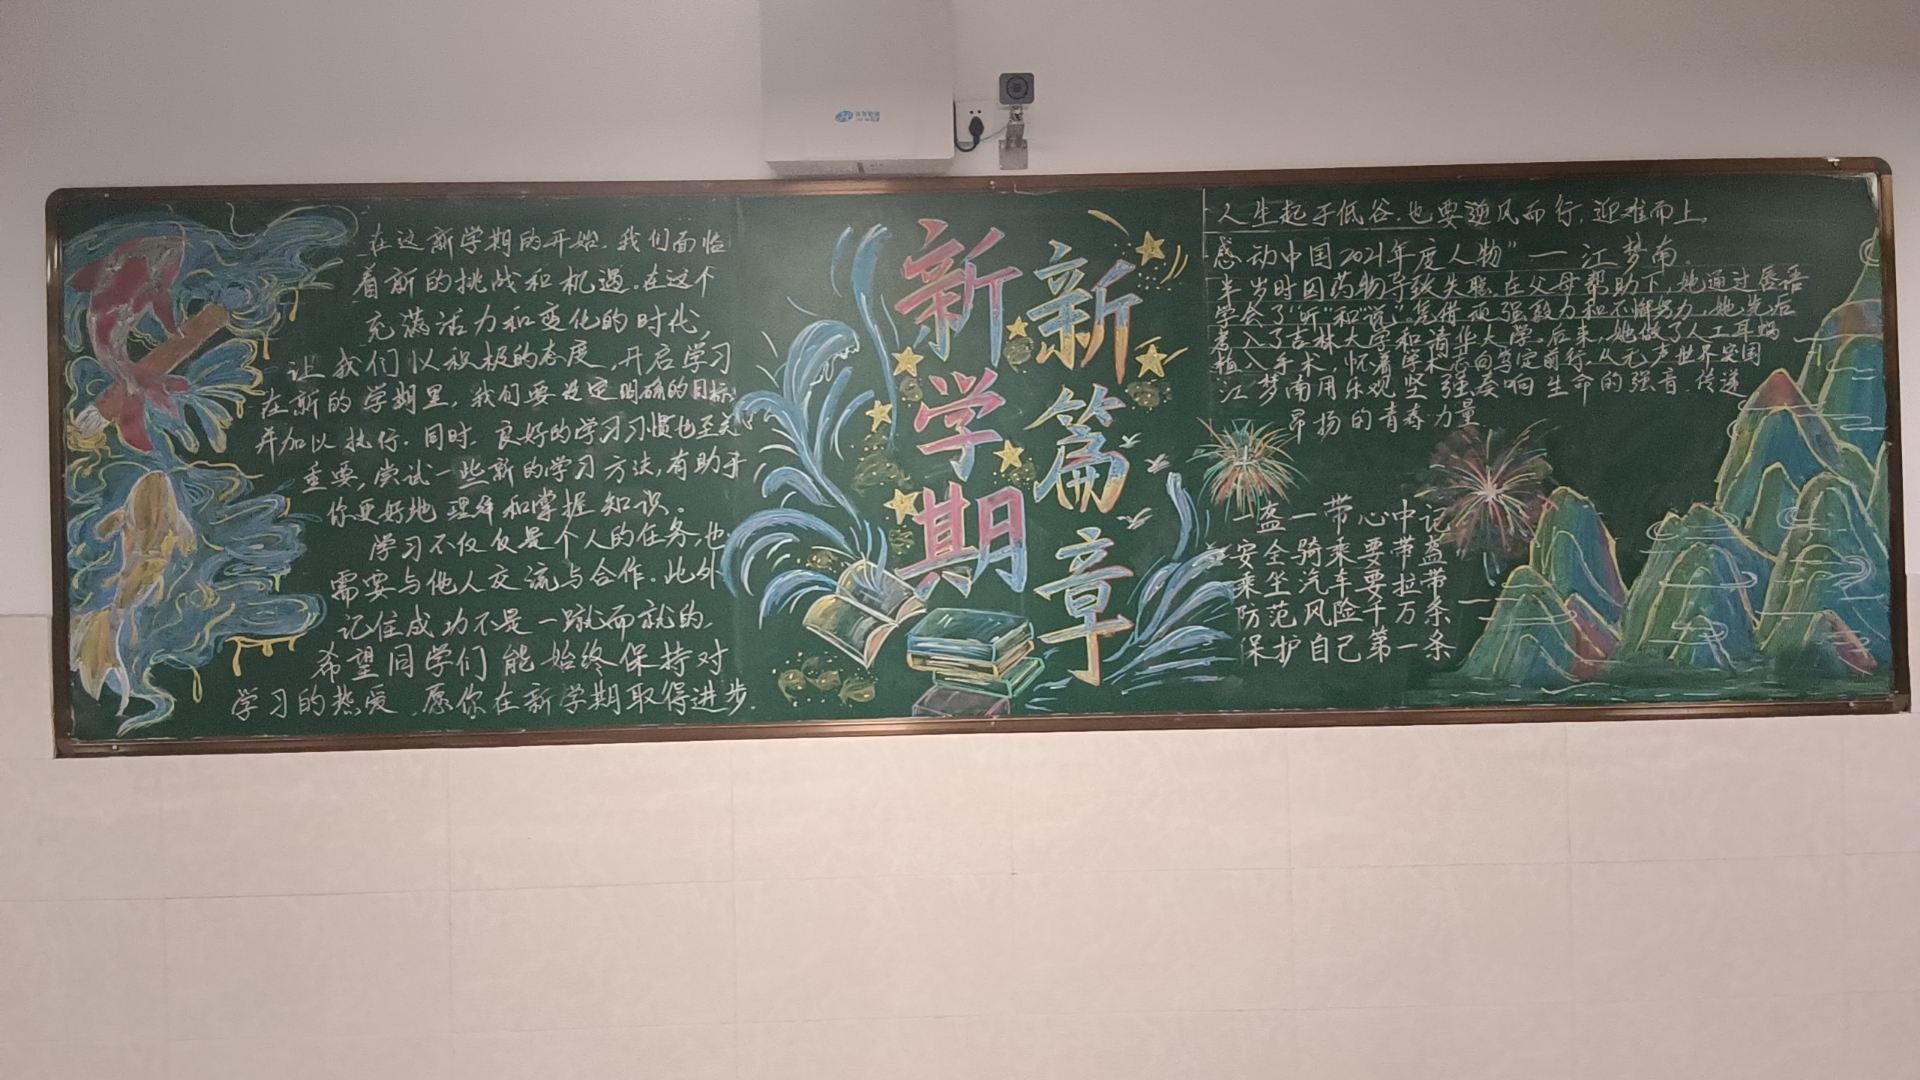 在这新学期的开始，我们面临
着新的挑战和机遇。在这个
充满活力和变化的时代，
让我们以积极的态度，开启学习
在新的学期里，我们要设定明确的目标
并加以执行。同时，良好的学习习惯也至关
重要，尝试一些新的学习方法，有助于
你更好地理解和掌握知识。
学习不仅仅是个人的任务，也
需要与他人交流与合作。此外
记住成功不是一蹴而就的，
希望同学们能始终保持对
学习的热爱，愿你在新学期取得进步.
新学期
新篇章
人生起于低谷，也要逆风而行，迎难而上，
感动中国2021年度人物"—江梦南.
半岁时因药物导致失聪，在父母帮助下，她通过唇语
学会了"听"和"说"。凭借顽强毅力和不懈努力，她先后
考入了吉林大学和清华大学。后来，她做了人工耳蜗
植入手术，怀着学术志向笃定前行，从无声世界突围
江梦南用乐观坚强奏响生命的强音，传递
昂扬的青春力量
一盔一带心中记
安全骑乘要带盔
乘坐汽车要拉带
防范风险千万条
保护自己第一条